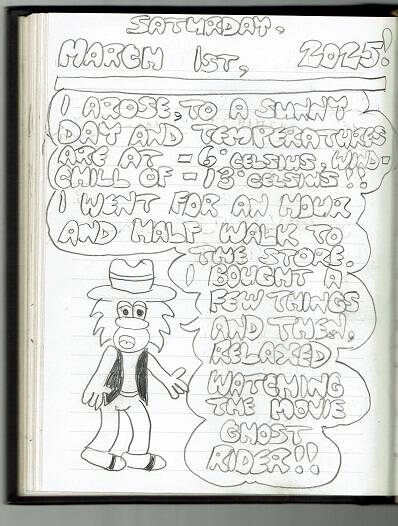 SATURDAY,
MARCH 1ST, 2025!
I AROSE, TO A SUNNY
DAY AND TEMPERATURES
ARE AT -6°CELSIUS, WIND-
CHILL OF -13°CELSIUS!!
I WENT FOR AN HOUR
AND HALF WALK TO
THE STORE.
I BOUGHT A
FEW THINGS
AND THEN,
RELAXED
WATCHING
THE MOVIE
GHOST
RIDER!!